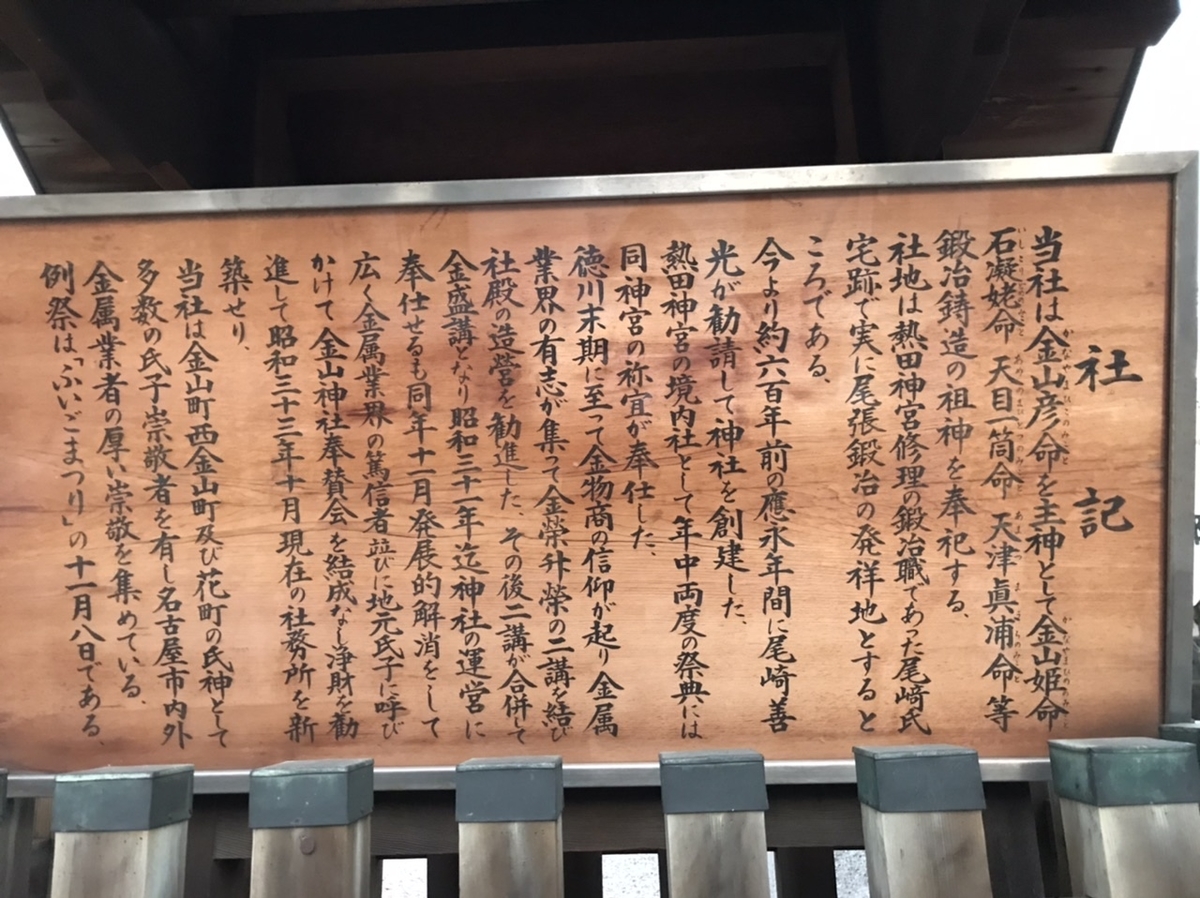 社記
当社は金山彦命を主神として金山姫命
石凝姥命 天目一箇命 天津眞浦命等
鍛冶鋳造の祖神を奉祀する、
社地は熱田神宮修理の鍛冶職であった尾﨑氏
宅跡で実に尾張鍛冶の発祥地とすると
ころである、
今より約六百年前の應永年間に尾﨑善
光が勧請して神社を創建した、
熱田神宮の境内社として年中両度の祭典には
同神宮の祢宜が奉仕した、
徳川末期に至って金物商の信仰が起り金属
業界の有志が集って金榮舛榮の二講を結び
社殿の造營を勧進した、その後二講が合併して
金盛講となり昭和三十一年迄神社の運営に
奉仕せるも同年十一月発展的解消をして
広く金属業界の篤信者並びに地元氏子に呼び
かけて金山神社奉賛会を結成なし浄財を勧
進して昭和三十三年十月現在の社務所を新
築せり、
当社は金山町西金山町及び花町の氏神として
多数の氏子崇敬者を有し名古屋市内外
金属業者の厚い崇敬を集めている、
例祭は「ふいごまつり」の十一月八日である、